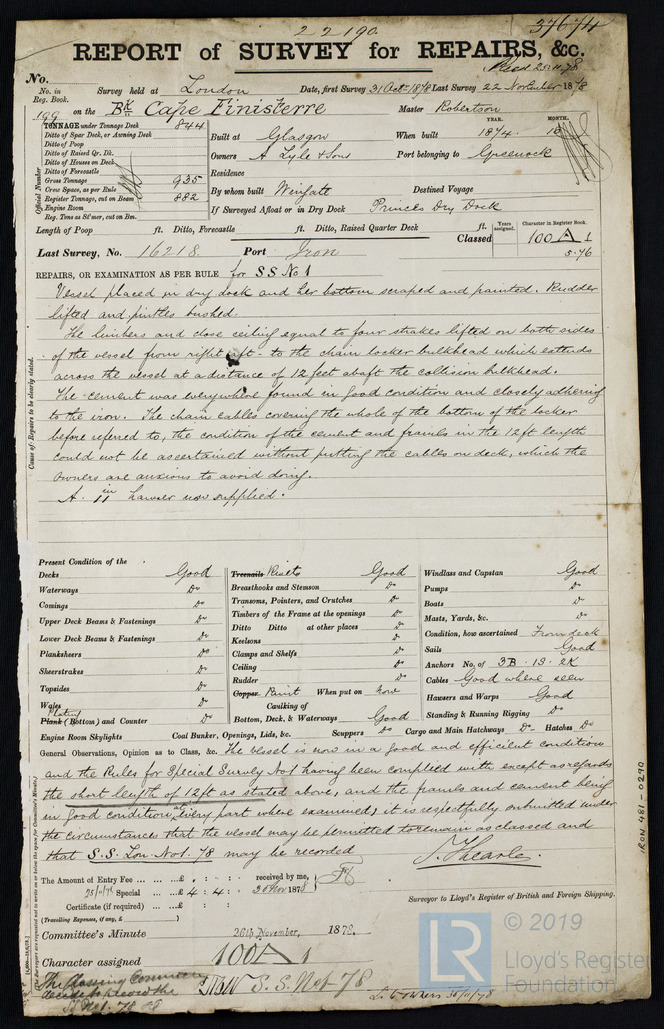 22190
37674
REPORT of SURVEY for REPAIRS, &c.
Recd 25.11.78
No.
No. in Reg. Book.
Survey held at London Date, first Survey 31 Octr 1878 Last Survey 22 November 1878
199 on the Bk Cape Finisterre Master Robertson
TONNAGE under Tonnage Deck 844
Ditto of Spar Deck, or Awning Deck
Ditto of Poop
Ditto of Raised Qr. Dk.
Ditto of Houses on Deck
Ditto of Forecastle
Gross Tonnage 935
Crew Space, as per Rule
Register Tonnage, cut on Beam 882
Engine Room
Reg. Tons as St'mer, cut on Bm.
Official Number
Built at Glasgow When built YEAR. 1874. MONTH. 10
Owners A Lyle & Sons Port belonging to Greenock
Residence
By whom built Wingate Destined Voyage
If Surveyed Afloat or in Dry Dock Princes Dry Dock
Length of Poop ft. Ditto, Forecastle ft. Ditto, Raised Quarter Deck ft.
Classed Years assigned. Character in Register Book. 100 A 1
5.76
Last Survey, No. 16218. Port Iron
REPAIRS, OR EXAMINATION AS PER RULE for S S No 1
Vessel placed in dry dock and her bottom scraped and painted. Rudder
lifted and pintles bushed.
The limbers and close ceiling equal to four strakes lifted on both sides
of the vessel from right aft - to the chain locker bulkhead which extends
across the vessel at a distance of 12 feet abaft the collision bulkhead.
The cement was everywhere found in good condition and closely adhering
to the iron. The chain cables covering the whole of the bottom of the locker
before referred to, the condition of the cement and frames in the 12ft length
could not be ascertained without putting the cables on deck, which the
owners are anxious to avoid doing.
A 11 in Hawser now supplied.
Cause of Repairs to be clearly stated.
Present Condition of the
Decks Good
Waterways Do
Comings Do
Upper Deck Beams & Fastenings Do
Lower Deck Beams & Fastenings Do
Planksheers Do
Sheerstrakes Do
Topsides Do
Wales Do
Plank Plating (Bottom) and Counter Do
Engine Room Skylights
Treenails Rivets Good
Breasthooks and Stemson Do
Transoms, Pointers, and Crutches Do
Timbers of the Frame at the openings Do
Ditto Ditto at other places Do
Keelsons Do
Clamps and Shelfs Do
Ceiling Do
Rudder Do
Copper Paint When put on now
Caulking of
Bottom, Deck, & Waterways Good
Coal Bunker, Openings, Lids, &c. Scuppers Do Cargo and Main Hatchways Do Hatches Do
Windlass and Capstan Good
Pumps Do
Boats Do
Masts, Yards, &c. Do
Condition, how ascertained From deck
Sails Good
Anchors No. of 3B. 1S. 2K
Cables Good where seen
Hawsers and Warps Good
Standing & Running Rigging Do
General Observations, Opinion as to Class, &c. The vessel is now in a good and efficient condition
and the Rules for Special Survey No1 having been complied with except as regards
the short length of 12ft as stated above, and the frames and cement being
in good condition at every part where examined, it is respectfully submitted under
the circumstances that the vessel may be permitted to remain as classed and
that S.S. Lon. No1. 78 may be recorded
J. Thearle.
Surveyor to Lloyd's Register of British and Foreign Shipping.
The Amount of Entry Fee £ : : received by me,
25/11/78 Special £ 4 : 4 : 30 Nov 1878
Certificate (if required) £ : :
(Travelling Expenses, if any, £ )
Committee's Minute 26th November, 1878.
Character assigned 100 A 1
S.S. No1-78
The Classing Committee
decide to record the
SS No1. 78
IRON 481-0290
© 2019
LR
Lloyd's Register
Foundation